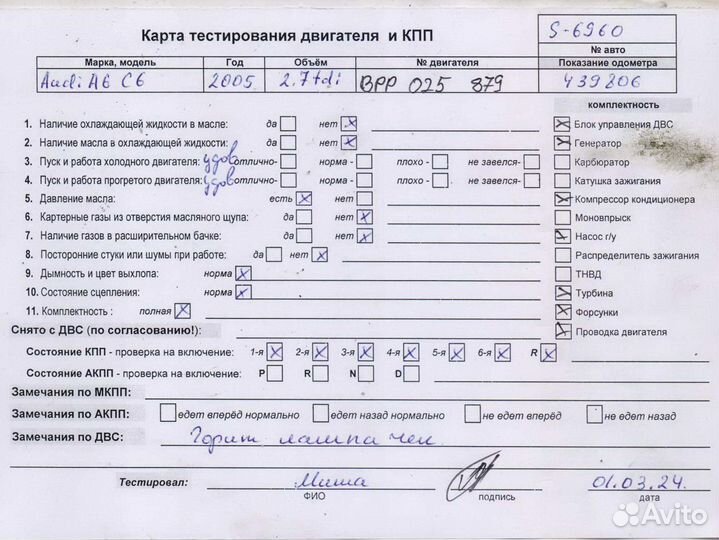 Карта тестирования двигателя и КПП
S-6960
№ авто
Марка, модель Год Объём № двигателя Показание одометра
Audi A6 C6 2005 2.7tdi BPP 025 879 439806
комплектность
1. Наличие охлаждающей жидкости в масле: да нет X Блок управления ДВС
2. Наличие масла в охлаждающей жидкости: да нет X Генератор
3. Пуск и работа холодного двигателя: удов отлично- норма - плохо - не завелся- Карбюратор
4. Пуск и работа прогретого двигателя: удов отлично- норма - плохо - не завелся- Катушка зажигания
5. Давление масла: есть X нет Компрессор кондиционера
6. Картерные газы из отверстия масляного щупа: да нет X Моновпрыск
7. Наличие газов в расширительном бачке: да нет X Насос г/у
8. Посторонние стуки или шумы при работе: да нет X Распределитель зажигания
9. Дымность и цвет выхлопа: норма X ТНВД
10. Состояние сцепления: норма X Турбина
11. Комплектность : полная X Форсунки
Снято с ДВС (по согласованию!): Проводка двигателя
Состояние КПП - проверка на включение: 1-я X 2-я X 3-я X 4-я X 5-я X 6-я X R X
Состояние АКПП - проверка на включение: P R N D
Замечания по МКПП:
Замечания по АКПП: едет вперёд нормально едет назад нормально не едет вперёд не едет назад
Замечания по ДВС: Горит лампа чек
Тестировал: Миша 01.03.24.
ФИО подпись дата
Avito